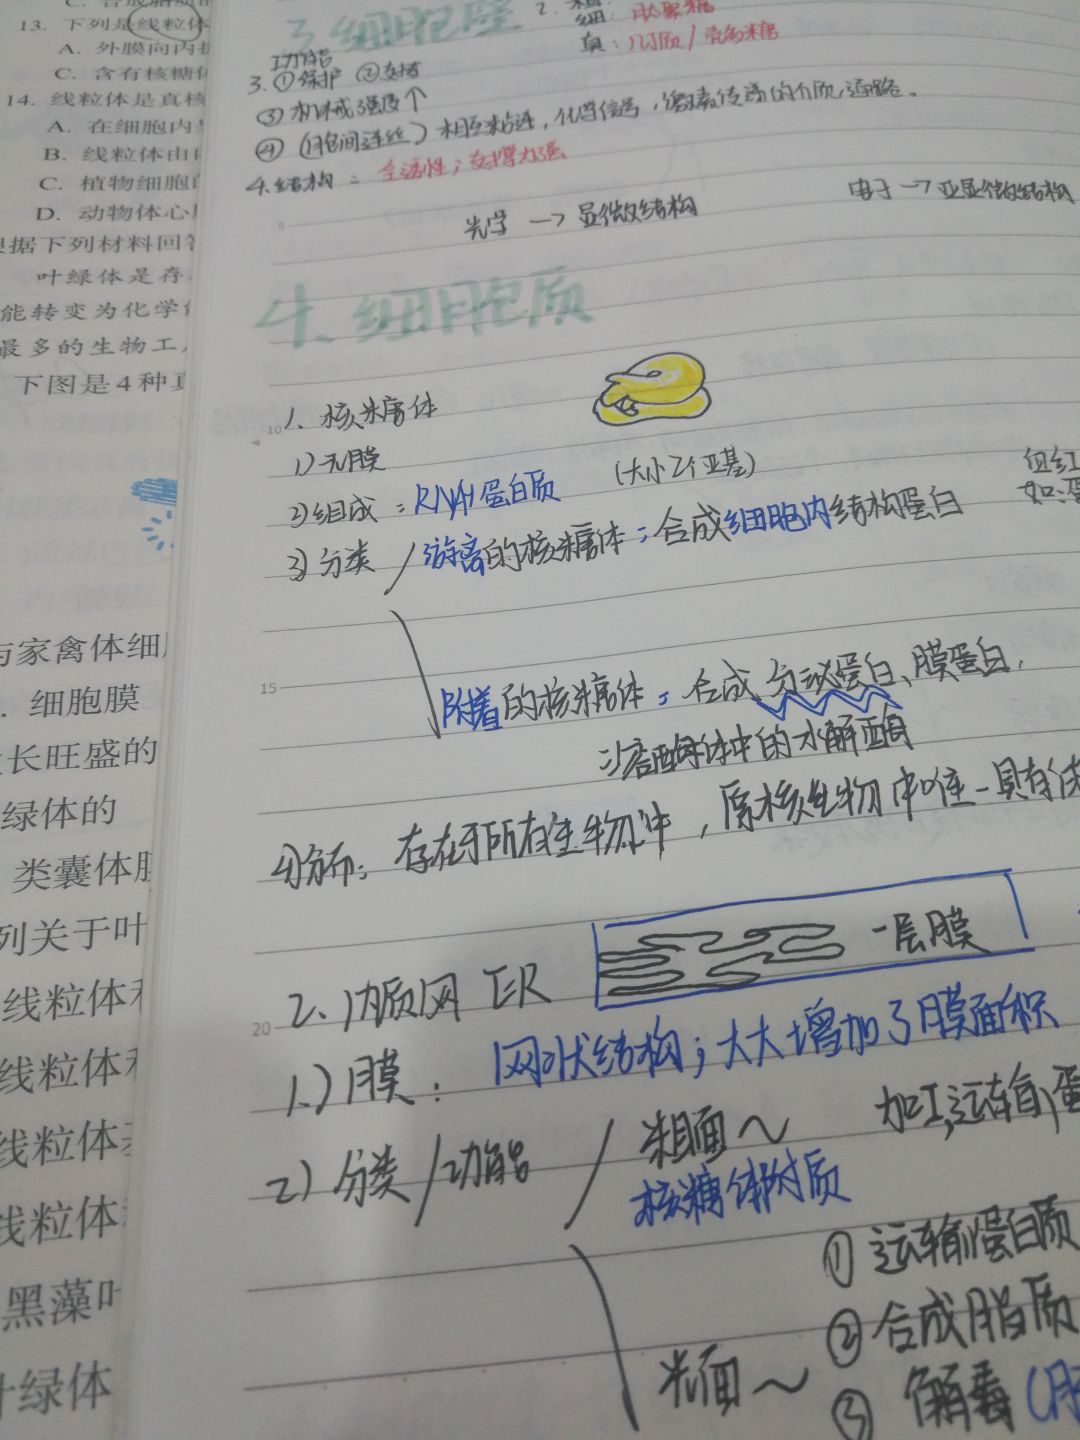 13. 下列是线粒体
A. 外膜向内
C. 含有核糖体
14. 线粒体是真核
A. 在细胞内
B. 线粒体由
C. 植物细胞
D. 动物体心
根据下列材料回答
叶绿体是存
能转变为化学
最多的生物工
下图是4种真
与家禽体细
. 细胞膜
长旺盛的
绿体的
类囊体
列关于叶
线粒体和
线粒体和
线粒体基
线粒体
黑藻叶
叶绿体
3 细胞壁
2. 植:
细: 肽聚糖
真: 几丁质/壳多糖
功能
3. ①保护 ②支持
③ 机械强度↑
④ (胞间连丝) 相互粘连, 化学信号, 激素传递的介质, 通路。
4. 结构: 全透性; 支撑力强
光学 → 显微结构
电子 → 亚显微结构
4. 细胞质
1. 核糖体
1) 无膜
2) 组成: RNA+蛋白质 (大小2个亚基)
3) 分类 / 游离的核糖体: 合成细胞内结构蛋白
附着的核糖体: 合成分泌蛋白、膜蛋白,
溶酶体中的水解酶
4) 分布: 存在于所有生物中, 原核生物中唯一具有
2. 内质网 ER 一层膜
1.) 膜: 网状结构; 大大增加了膜面积
2) 分类/功能 / 粗面~ 加工,运输,蛋
核糖体附质
① 运输蛋白质
② 合成脂质
光面~ ③ 解毒 (肝